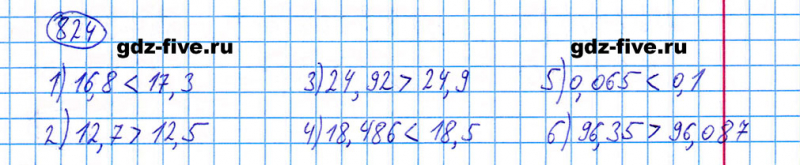 824
gdz-five.ru gdz-five.ru
1) 16,8 < 17,3 3) 24,92 > 24,9 5) 0,065 < 0,1
2) 12,7 > 12,5 4) 18,486 < 18,5 6) 96,35 > 96,087